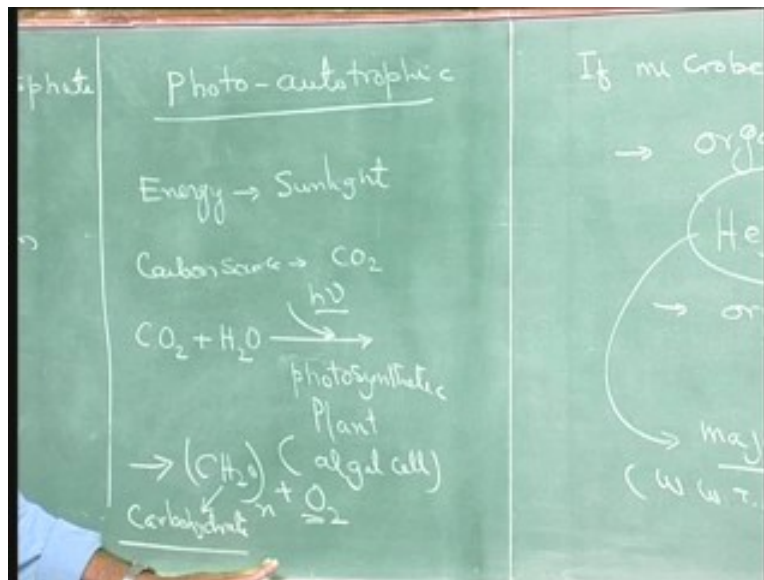 Photo-autotrophic
Energy → Sunlight
Carbon source → CO2
CO2 + H2O → hν
photosynthetic
Plant
(algal cell)
→ (CH2O)n + O2
Carbohydrate
If microbe
→ orga
He
→ or
maj
(W.W.T.